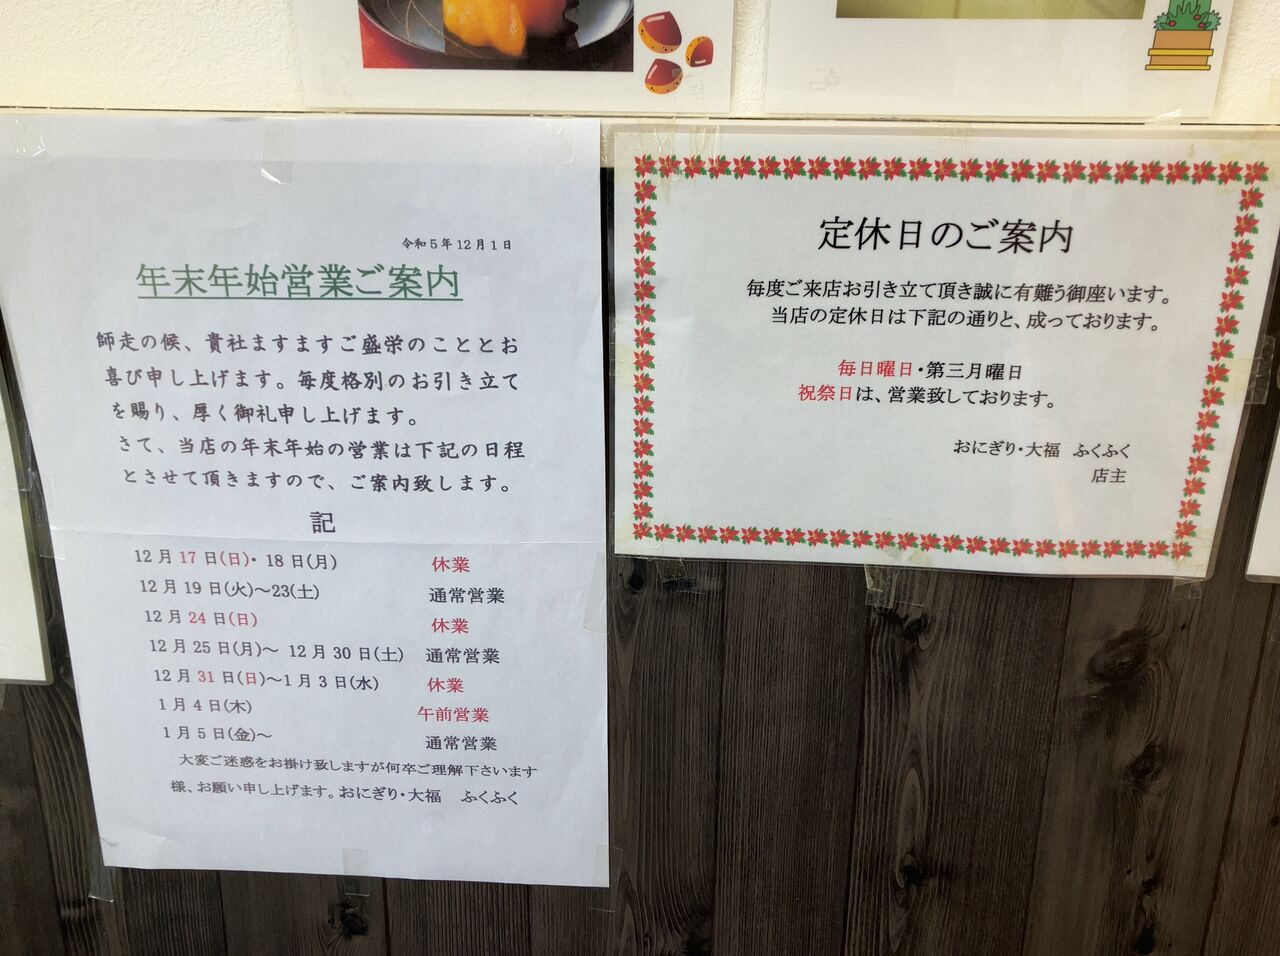 令和5年12月1日
年末年始営業ご案内
師走の候、貴社ますますご盛栄のこととお
喜び申し上げます。毎度格別のお引き立て
を賜り、厚く御礼申し上げます。
さて、当店の年末年始の営業は下記の日程
とさせて頂きますので、ご案内致します。
記
12月17日(日)・18日(月) 休業
12月19日(火)～23(土) 通常営業
12月24日(日) 休業
12月25日(月)～ 12月30日(土) 通常営業
12月31日(日)～1月3日(水) 休業
1月4日(木) 午前営業
1月5日(金)～ 通常営業
大変ご迷惑をお掛け致しますが何卒ご理解下さいます
様、お願い申し上げます。おにぎり・大福 ふくふく
定休日のご案内
毎度ご来店お引き立て頂き誠に有難う御座います。
当店の定休日は下記の通りと、成っております。
毎日曜日・第三月曜日
祝祭日は、営業致しております。
おにぎり・大福 ふくふく
店主